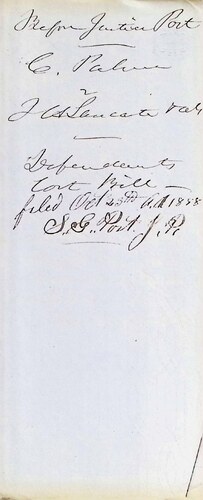 Before Justice Post
C. Palmer
v
J A Lancaster et al
Defendants
Cost Bill —
filed Oct 23rd AD 1858
S. G. Post J. P.